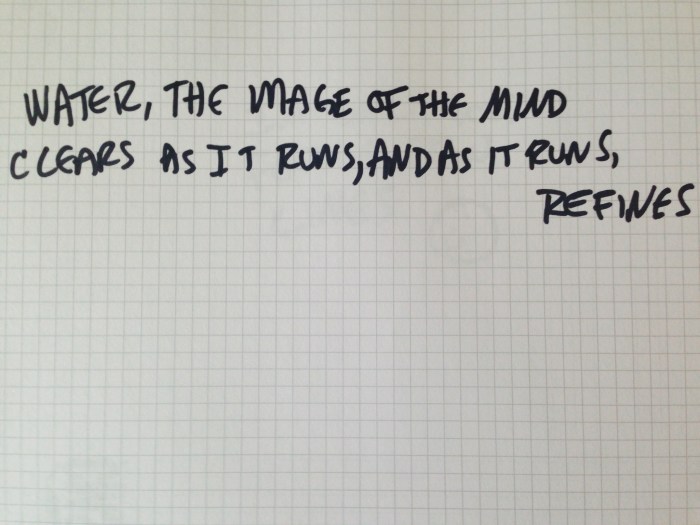 WATER, THE IMAGE OF THE MIND
CLEARS AS IT RUNS, AND AS IT RUNS,
REFINES